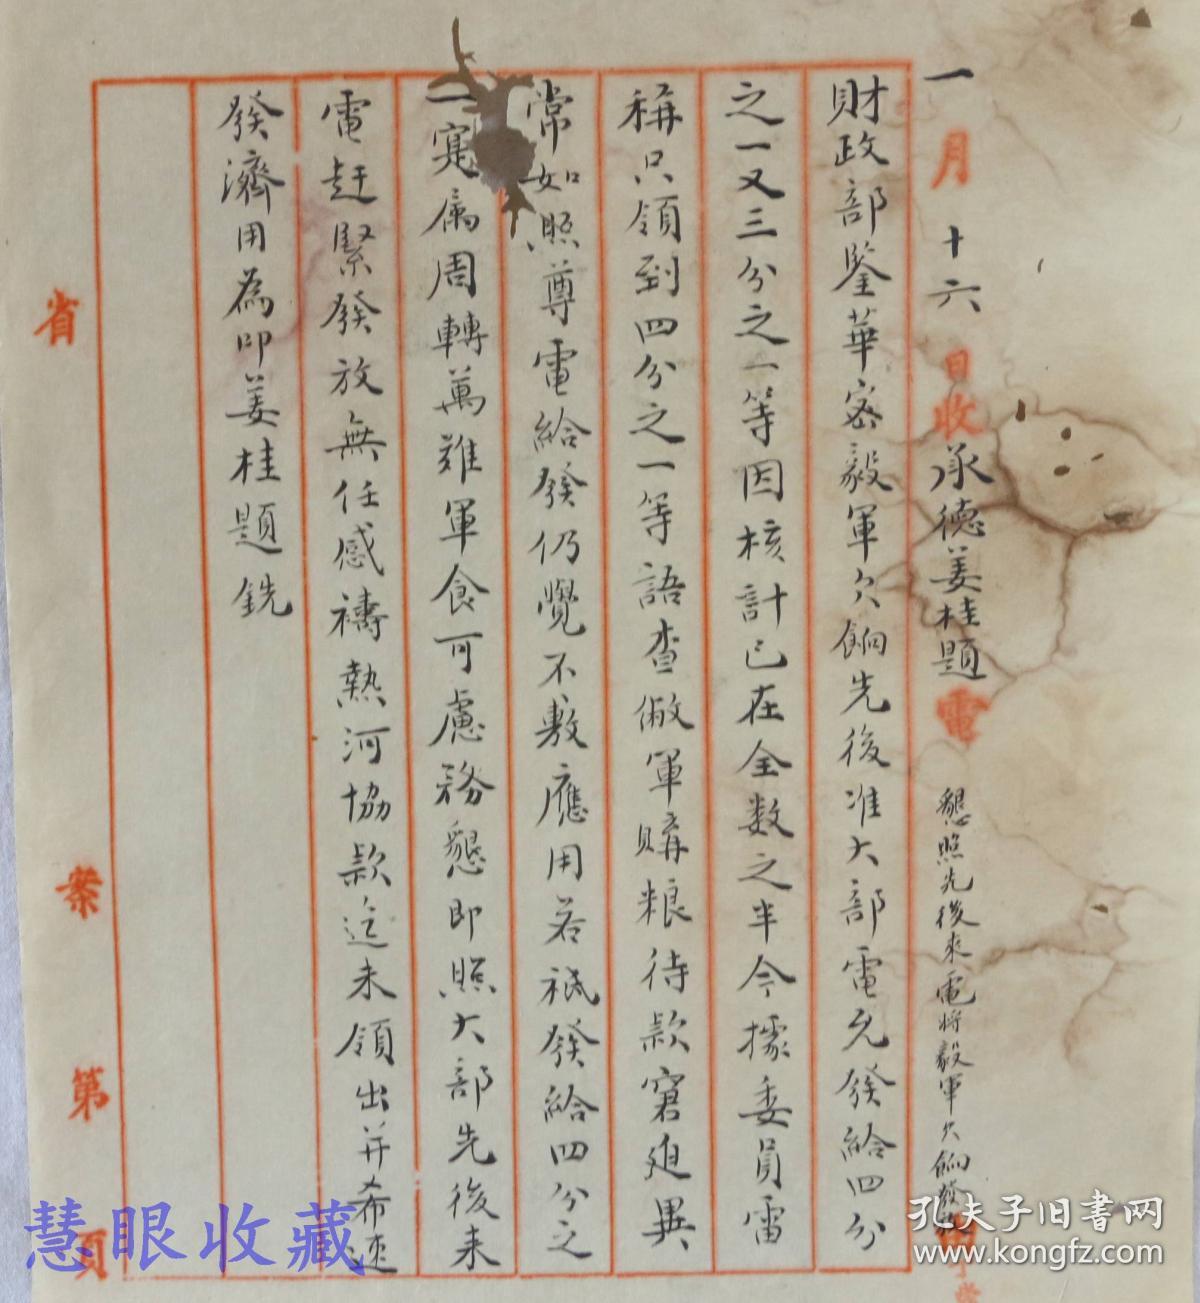 一月十六日收承德姜桂題電 懇照先後來電將毅軍欠餉發
財政部鑒華密毅軍欠餉先後准大部電允發給四分
之一又三分之一等因核計已在全数之半今據委員雷
稱只領到四分之一等語查敝軍購粮待款窘迫異
常如照尊電給發仍覺不敷應用若祇發給四分之
一寔属周轉萬難軍食可慮務懇即照大部先後來
電赶緊發放無任感禱熱河協款迄未領出并希速
發濟用為叩姜桂題銑
省 案 第 頁
慧眼收藏
孔夫子旧书网
www.kongfz.com